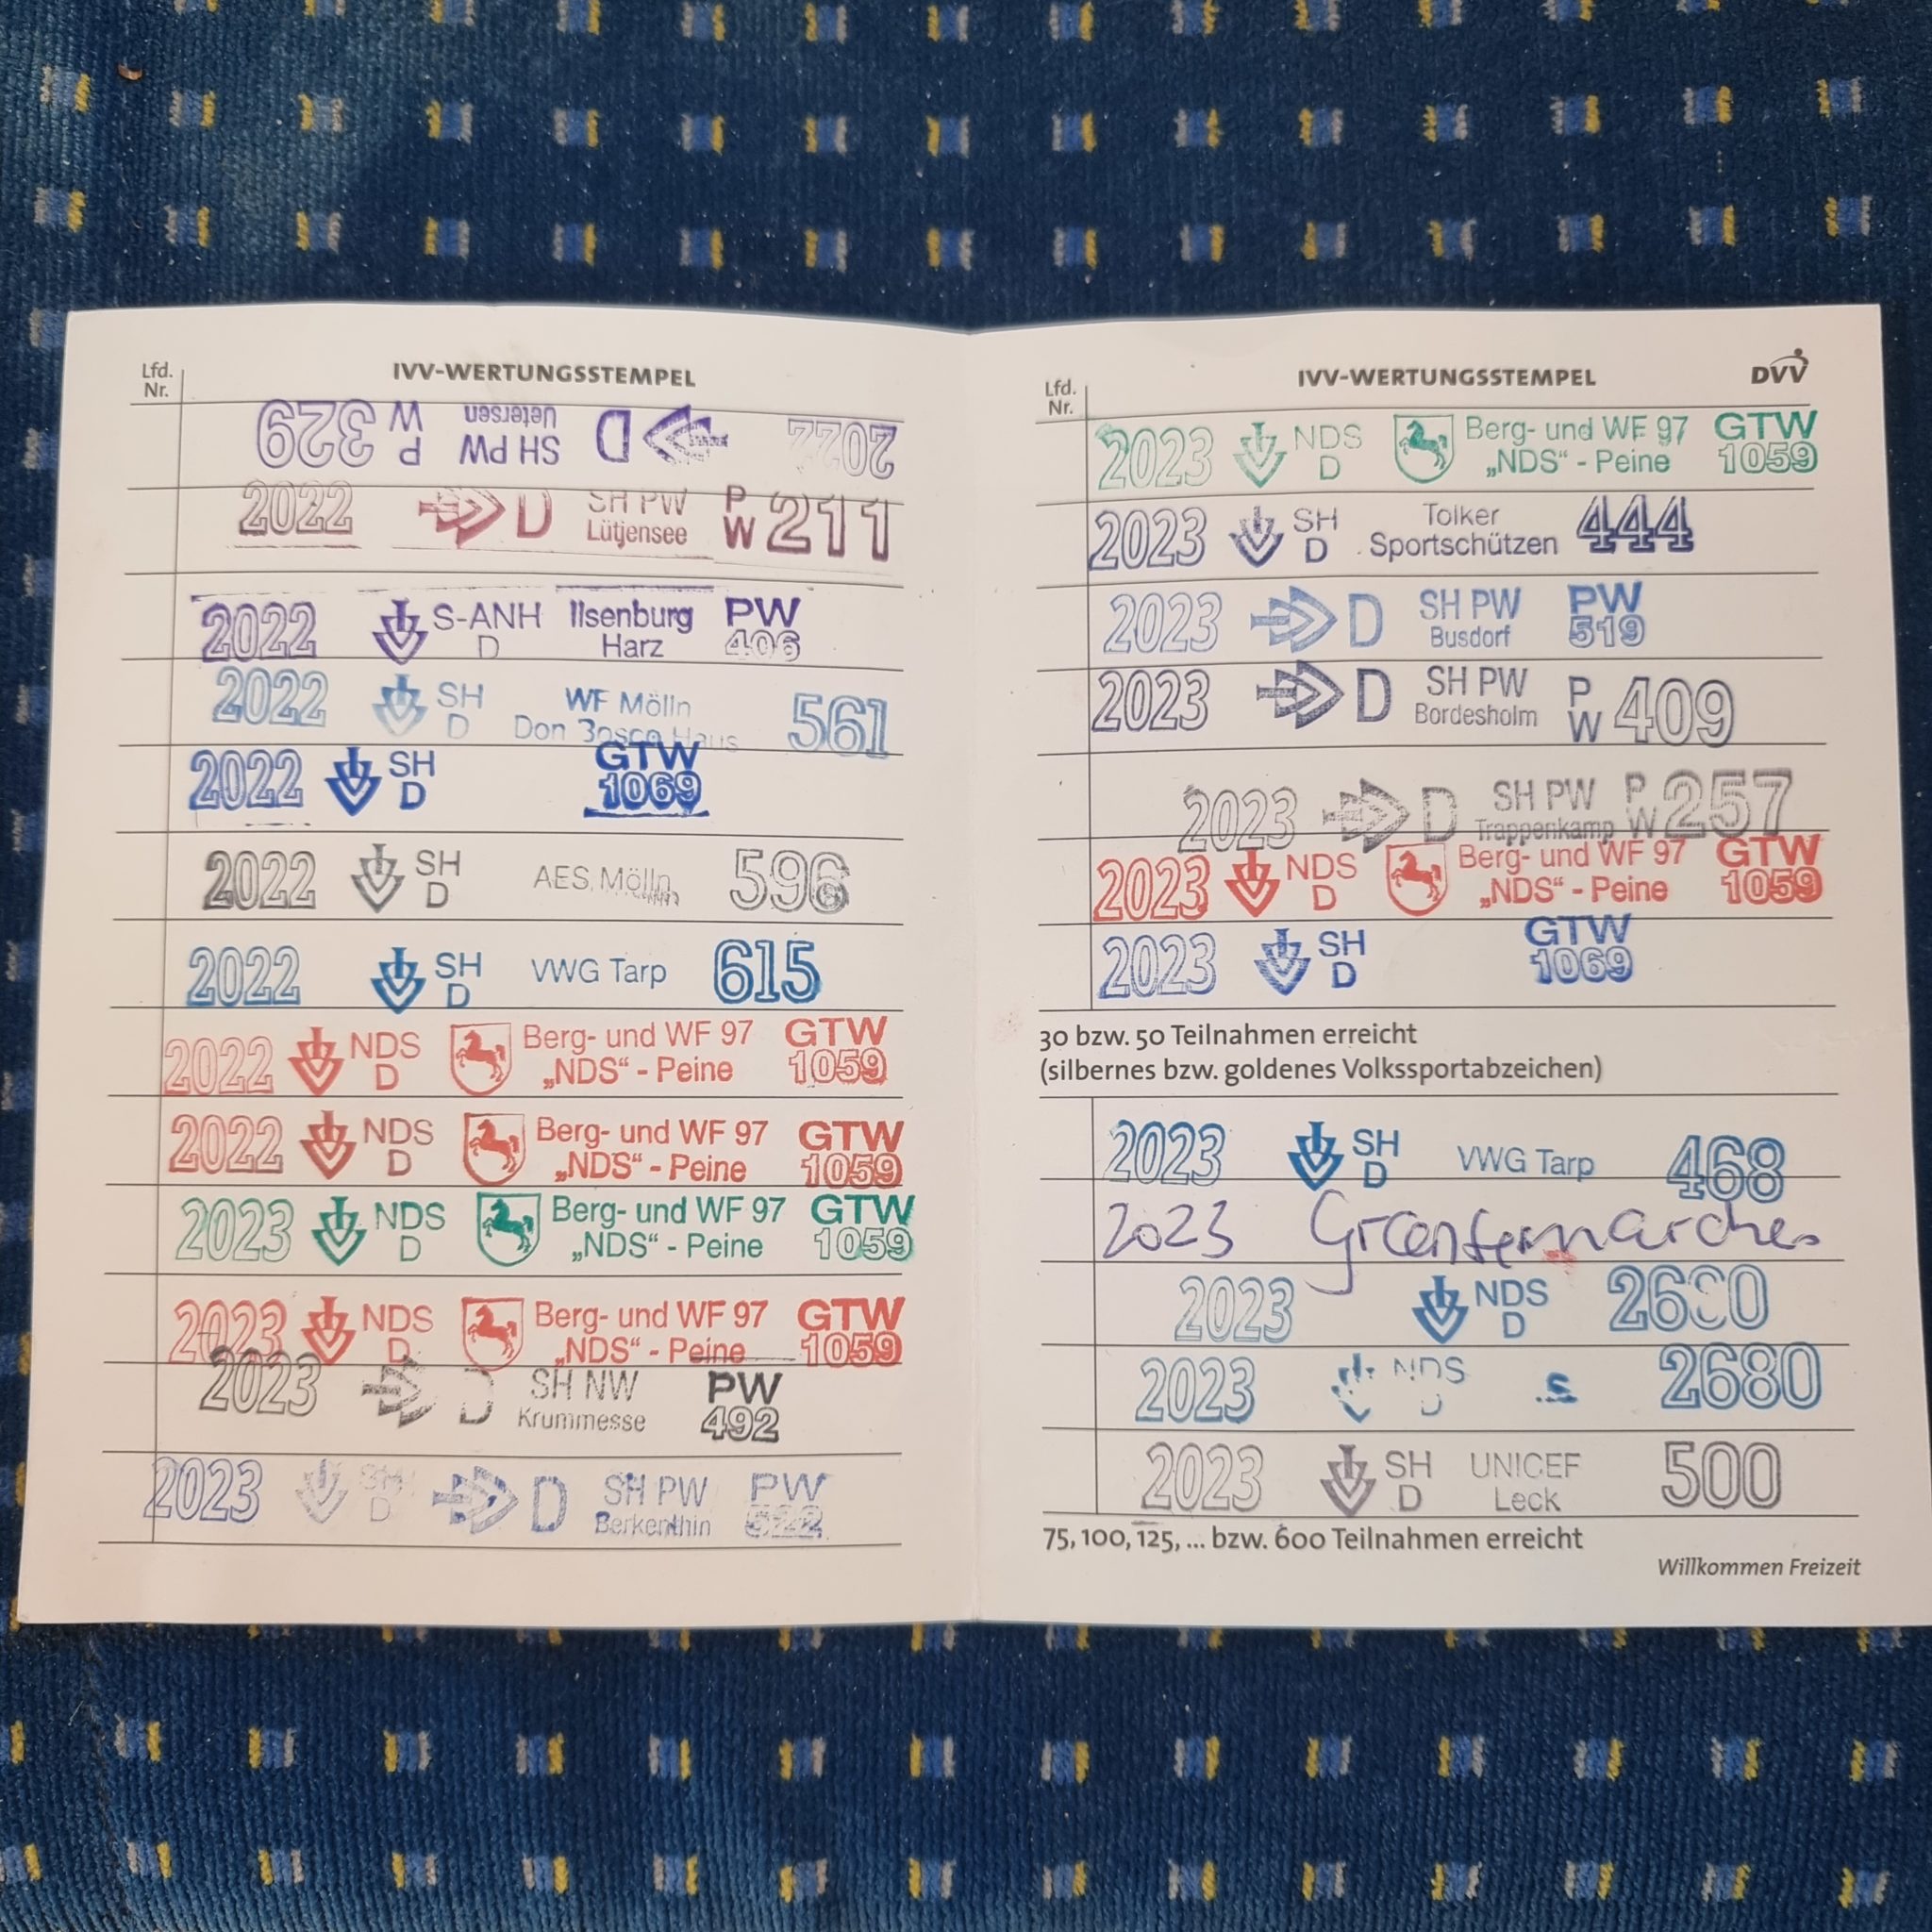 Lfd.
Nr.
IVV-WERTUNGSSTEMPEL
2022 D SH PW Uetersen PW 329
2022 D SH PW Lütjensee PW 211
2022 S-ANH D Ilsenburg Harz PW 406
2022 SH D WF Mölln Don Bosco Haus 561
2022 SH D GTW 1069
2022 SH D AES Mölln 596
2022 SH D VWG Tarp 615
2022 NDS D Berg- und WF 97 „NDS“ - Peine GTW 1059
2022 NDS D Berg- und WF 97 „NDS“ - Peine GTW 1059
2023 NDS D Berg- und WF 97 „NDS“ - Peine GTW 1059
2023 NDS D Berg- und WF 97 „NDS“ - Peine GTW 1059
2023 D SH NW Krummesse PW 492
2023 SH D D SH PW Berkenthin PW 522
Lfd.
Nr.
IVV-WERTUNGSSTEMPEL
DVV
2023 NDS D Berg- und WF 97 „NDS“ - Peine GTW 1059
2023 SH D Tolker Sportschützen 444
2023 D SH PW Busdorf PW 519
2023 D SH PW Bordesholm PW 409
2023 D SH PW Trappenkamp PW 257
2023 NDS D Berg- und WF 97 „NDS“ - Peine GTW 1059
2023 SH D GTW 1069
30 bzw. 50 Teilnahmen erreicht
(silbernes bzw. goldenes Volkssportabzeichen)
2023 SH D VWG Tarp 468
2023
2023 NDS D 2680
2023 NDS D 2680
2023 SH D UNICEF Leck 500
75, 100, 125, ... bzw. 600 Teilnahmen erreicht
Willkommen Freizeit